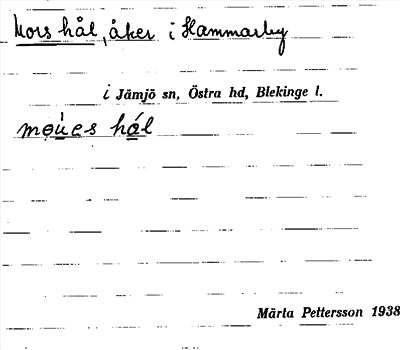 Mors hål, åker i Hammarby
i Jämjö sn, Östra hd, Blekinge l.
hål
Märta Pettersson 1938